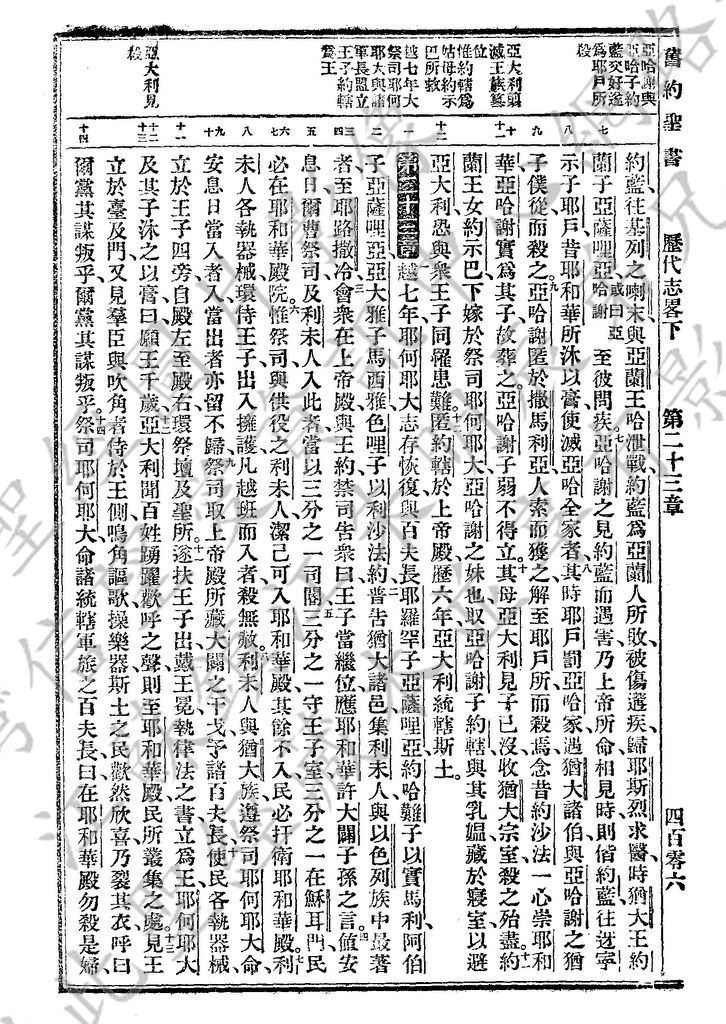 舊約聖書 歷代志畧下 第二十三章 四百零六
亞哈謝與
亞哈子約
藍交好遂
爲耶戶所
殺
亞大利剿
滅王族簒
位
惟約轄爲
姑母約示
巴所救
越七年大
祭司耶何
耶大與諸
軍長盟立
王子約轄
爲王
亞大利見
殺
約藍往基列之喇末、與亞蘭王哈泄戰、約藍爲亞蘭人所敗、被傷遘疾、歸耶斯烈求醫、時猶大王約
七 蘭子亞薩哩亞、或曰亞哈謝 至彼問疾。七亞哈謝之見約藍而遇害、乃上帝所命、相見時、則偕約藍往迓寧
八 示子耶戶、昔耶和華所沐以膏、使滅亞哈全家者、八其時耶戶罰亞哈家、遇猶大諸伯、與亞哈謝之猶
九 子、僕從而殺之。九亞哈謝匿於撒馬利亞、人索而獲之、解至耶戶所而殺焉、念昔約沙法一心崇耶和
十 十一 華、亞哈謝實爲其子、故葬之。亞哈謝子弱、不得立。十其母亞大利見子已沒、收猶大宗室殺之殆盡。十一約
蘭王女約示巴下嫁於祭司耶何耶大、亞哈謝之妹也、取亞哈謝子約轄與其乳媼、藏於寢室、以避
十二 亞大利、恐與衆王子同罹患難、十二匿約轄於上帝殿、歷六年、亞大利統轄斯土。
一 第二十三章 一越七年、耶何耶大志存恢復、與百夫長耶羅罕子亞薩哩亞、約哈難子以實馬利、阿伯
二 子亞薩哩亞、亞大雅子馬西雅、色哩子以利沙法約、二普告猶大諸邑、集利未人與以色列族中最著
三 四 者至耶路撒冷、三會衆在上帝殿與王約禁、司告衆曰、王子當繼位、應耶和華許大闢子孫之言。四值安
五 息日、爾曹祭司及利未人入此者、當以三分之一司閽、五三分之一守王子室、三分之一在穌耳門、民
六 七 必在耶和華殿院、六惟祭司與供役之利未人潔己、可入耶和華殿、其餘不入、民必扞衛耶和華殿。七利
八 未人各執器械、環侍王子、出入擁護、凡越班而入者、殺無赦。八利未人與猶大族遵祭司耶何耶大命、
九 十 安息日當入者入、當出者亦留不歸。九祭司取上帝殿所藏大闢之干戈、予諸百夫長、十使民各執器械、
十一 立於王子四旁、自殿左至殿右、環祭壇及聖所。十一遂扶王子出、戴王冕、執律法之書、立爲王、耶何耶大
十二 十三 及其子沐之以膏、曰、願王千歲。十二亞大利聞百姓踴躍歡呼之聲、則至耶和華殿、民所叢集之處、十三見王
立於臺、及門、又見羣臣與吹角者、侍於王側、鳴角謳歌、操樂器、斯土之民歡然欣喜、乃裂其衣、呼曰、
十四 爾黨其謀叛乎、爾黨其謀叛乎。十四祭司耶何耶大命諸統轄軍旅之百夫長曰、在耶和華殿、勿殺是婦、